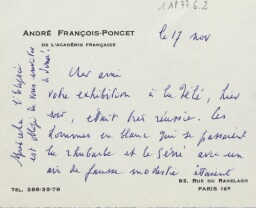 11877 G.2
ANDRÉ FRANÇOIS-PONCET
DE L'ACADÉMIE FRANÇAISE
le 17 nov
Cher ami
votre exhibition à la Télé, hier
soir, était très réussie. Les
hommes en blanc qui se passaient
la rhubarbe et le séné avec un
air de fausse modestie étaient
92, RUE DU RANELAGH
TÉL. 288-35-78
PARIS 16e
est obligé de vous